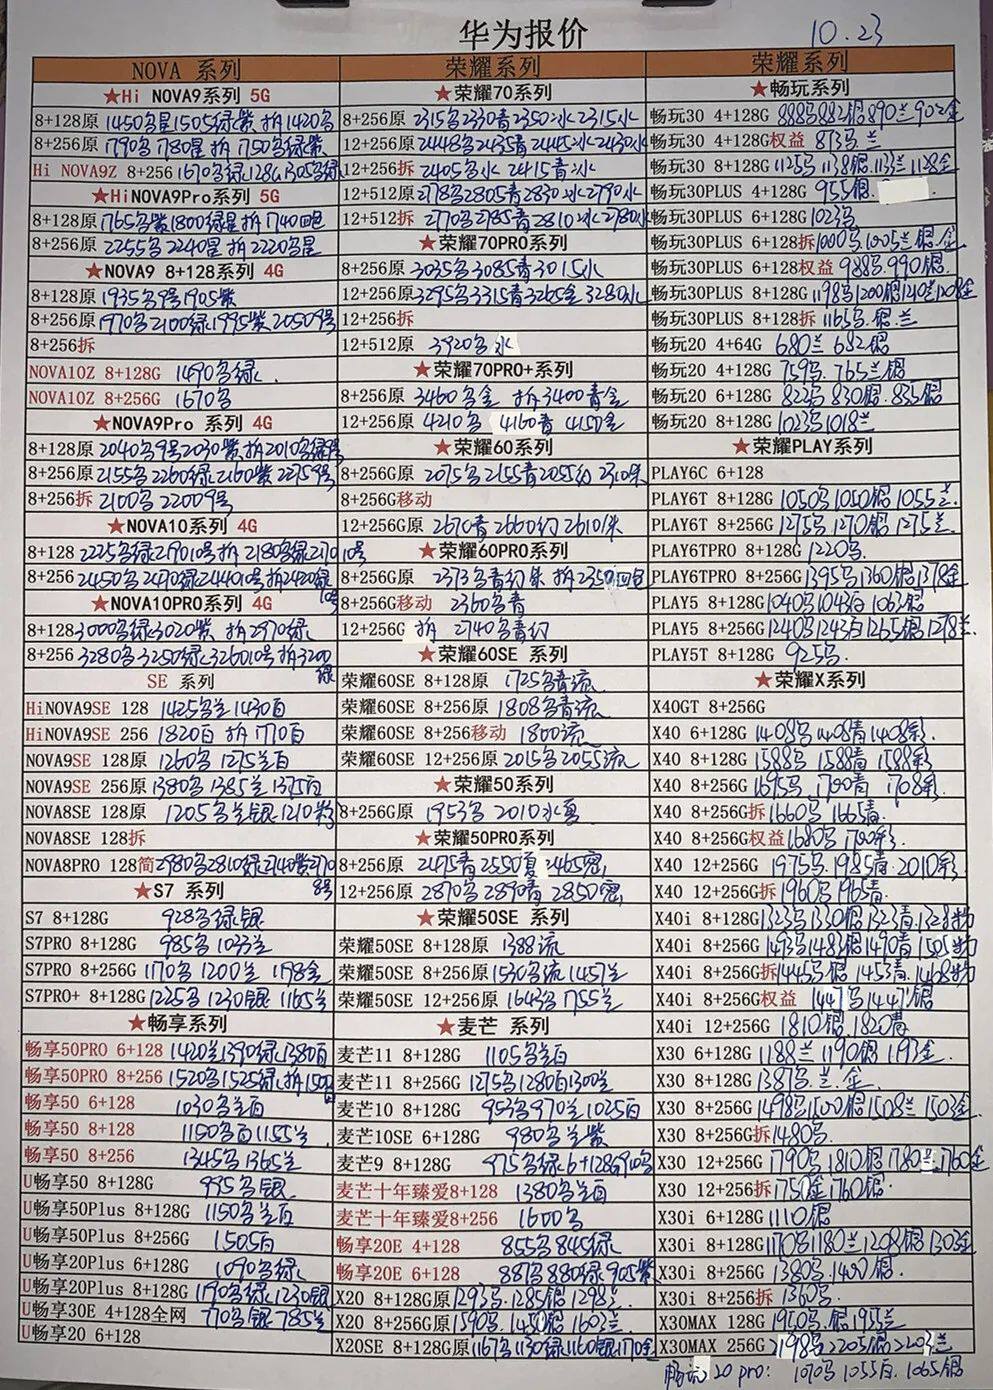 华为报价 10.23
NOVA 系列
★Hi NOVA9系列 5G
8+128原
8+256原
Hi NOVA9Z 8+256
★HiNOVA9Pro系列 5G
8+128原
8+256原 2255乌 2240星 折2220乌星
★NOVA9 8+128系列 4G
8+128原 1935乌9号1905紫
8+256原 1970乌2100绿1995紫20509号
8+256拆
NOVA10Z 8+128G 1490乌绿
NOVA10Z 8+256G 1670乌
★NOVA9Pro 系列 4G
8+128原
8+256原 2155乌2260绿2160紫22759号
8+256拆 2100乌 22009号
★NOVA10系列 4G
8+128
8+256
★NOVA10PRO系列 4G
8+128 3000乌绿3020紫 折2970绿
8+256
SE 系列
HiNOVA9SE 128 1425乌兰1430百
HiNOVA9SE 256 1820百 折1770百
NOVA9SE 128原 1260乌 1275兰百
NOVA9SE 256原 1380乌 1385兰 1375百
NOVA8SE 128原 1205乌兰银1210粉
NOVA8SE 128拆
NOVA8PRO 128简
★S7 系列
S7 8+128G 928乌绿银
S7PRO 8+128G
S7PRO 8+256G 1170乌 1200兰 1198金
S7PRO+ 8+128G 1225乌 1230银 1165兰
★畅享系列
畅享50PRO 6+128 1420兰1390绿1380百
畅享50PRO 8+256
畅享50 6+128 1030乌兰百
畅享50 8+128 1150乌百1155兰
畅享50 8+256 1345乌1365兰
U畅享50 8+128G 995乌银
U畅享50Plus 8+128G 1150乌兰百
U畅享50Plus 8+256G 1505百
U畅享20Plus 6+128G 1090乌绿
U畅享20Plus 8+128G 1190乌绿1230银
U畅享30E 4+128全网 770乌银785兰
U畅享20 6+128
荣耀系列
★荣耀70系列
8+256原 2315乌2330青2350冰2315水
12+256原 2448乌2435青2445冰2430水
12+256拆 2405乌水 2415青冰
12+512原 2778乌2805青2830冰2790水
12+512拆 2770乌2785青2810冰2780水
★荣耀70PRO系列
8+256原 3035乌3085青3015水
12+256原 3295乌3315青3265金3280水
12+256拆
12+512原 3920乌水
★荣耀70PRO+系列
8+256原 3460乌金 折3400青金
12+256原 4210乌 4160青 4150金
★荣耀60系列
8+256G原
8+256G移动
12+256G原
★荣耀60PRO系列
8+256G原
8+256G移动 2360乌青
12+256G 折 2740乌青幻
★荣耀60SE 系列
荣耀60SE 8+128原 1725乌青流
荣耀60SE 8+256原 1808乌青流
荣耀60SE 8+256移动 1800流
荣耀60SE 12+256原 2015乌2055流
★荣耀50系列
8+256G原 1953乌 2010水夏
★荣耀50PRO系列
8+256原 2475青2550夏2465密
12+256原 2870乌2890青2850密
★荣耀50SE 系列
荣耀50SE 8+128原 1388流
荣耀50SE 8+256原 1530乌流1457兰
荣耀50SE 12+256原 1643乌1755兰
★麦芒 系列
麦芒11 8+128G 1105乌兰百
麦芒11 8+256G 1275乌1280百1300兰
麦芒10 8+128G 953乌970兰1025百
麦芒10SE 6+128G 980乌兰紫
麦芒9 8+128G 975乌绿6+128G910乌
麦芒十年臻爱8+128 1380乌兰百
麦芒十年臻爱8+256 1600乌
畅享20E 4+128 855乌845绿
畅享20E 6+128 887乌880绿905紫
X20 8+128G原 1293乌.1285银1298兰
X20 8+256G原 1590乌.1450银1603兰
X20SE 8+128G原 1167乌1130绿1160银1170金
荣耀系列
★畅玩系列
畅玩30 4+128G 888乌882银890兰902金
畅玩30 4+128G权益 873乌.兰
畅玩30 8+128G 1125乌1138银1133兰1128金
畅玩30PLUS 4+128G 955银
畅玩30PLUS 6+128G 1023乌
畅玩30PLUS 6+128拆 1000乌1005兰银金
畅玩30PLUS 6+128权益 988乌990银
畅玩30PLUS 8+128G 1198乌1200银1210兰1208金
畅玩30PLUS 8+128拆 1165乌.银.兰
畅玩20 4+64G 680兰 682银
畅玩20 4+128G 759乌.765兰银
畅玩20 6+128G 822乌 830银.835银
畅玩20 8+128G 1023乌1018兰
★荣耀PLAY系列
PLAY6C 6+128
PLAY6T 8+128G 1050乌1050银1055兰
PLAY6T 8+256G 1275乌1270银1275兰
PLAY6TPRO 8+128G 1220乌
PLAY6TPRO 8+256G 1395乌1360银1378金
PLAY5 8+128G 1040乌1043百1063银
PLAY5 8+256G 1240乌1243百1265银1278兰
PLAY5T 8+128G 925乌
★荣耀X系列
X40GT 8+256G
X40 6+128G 1408乌1408青1408彩
X40 8+128G 1588乌 1588青 1588彩
X40 8+256G 1695乌,1700青 1708彩
X40 8+256G拆 1660乌1665青
X40 8+256G权益 1680乌1700彩
X40 12+256G 1975乌.1985青.2010彩
X40 12+256G拆 1960乌1965青
X40i 8+128G
X40i 8+256G
X40i 8+256G拆
X40i 8+256G权益 1447乌1447银
X40i 12+256G 1810银1820青
X30 6+128G 1188兰1190银1193金
X30 8+128G 1387乌.兰.金
X30 8+256G 1498乌1500银1508兰1503金
X30 8+256G拆 1480乌
X30 12+256G 1790乌1810银1780兰1760金
X30 12+256拆 1750金1760银
X30i 6+128G 1110银
X30i 8+128G
X30i 8+256G 1380乌.1400银
X30i 8+256拆 1360乌
X30MAX 128G 1950乌.银1955兰
X30MAX 256G 2198乌2205银2203兰
畅玩20 pro: 1070乌 1055百. 1065银